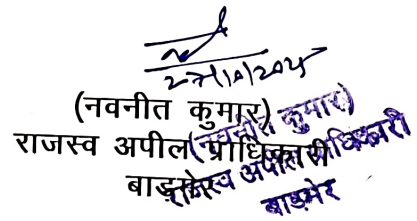 27/10/2025
(नवनीत कुमार)
राजस्व अपील प्राधिकारी
बाड़मेर
(नवनीत कुमार)
राजस्व अपील अधिकारी
बाड़मेर